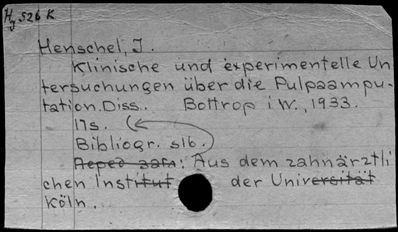 Hy 526 K
Henschel, J.
Klinische und experimentelle Un
tersuchungen über die Pulpaampu-
tation. Diss.. Bottrop i W., 1933.
17s.
Bibliogr. slb.
: Aus dem zahnärztli
chen Institut der Universität
Köln.